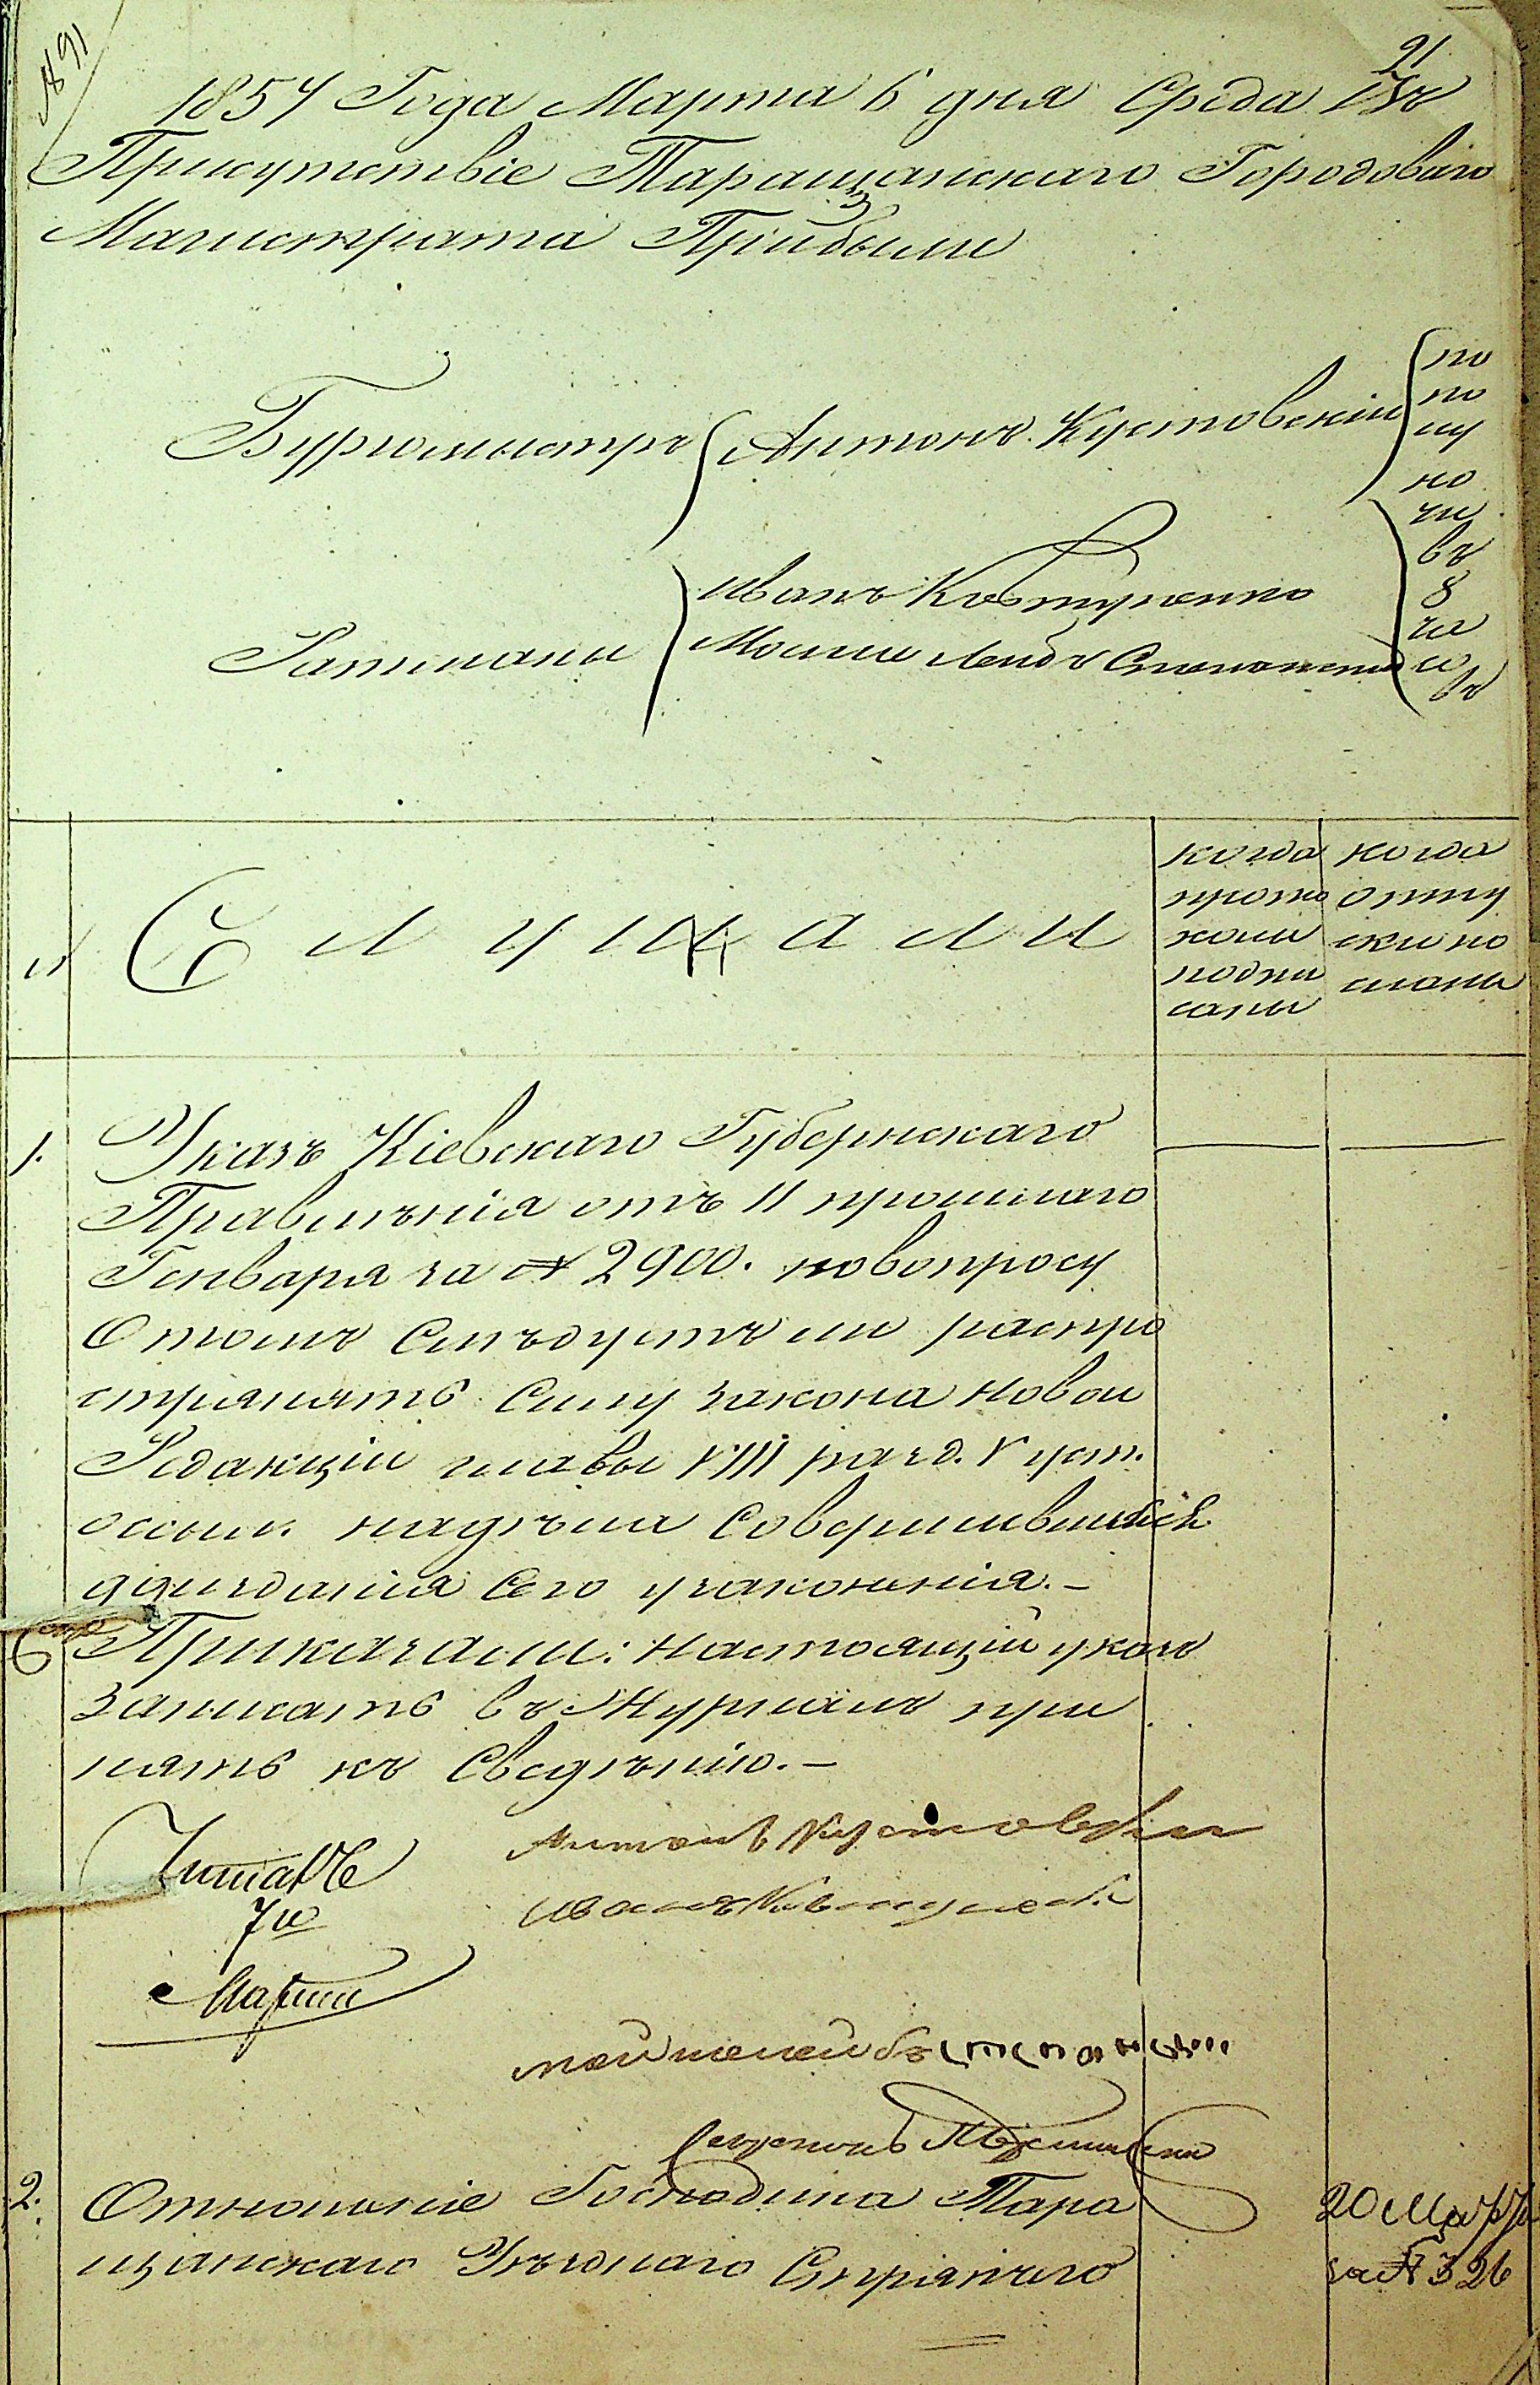 № 91
91
1857 Года Марта 6 дня Среда Въ
Присутствіе Таращанскаго Городоваго
Магистрата Прибыли
Бургомистръ Антонъ Кустовскій
Ратманы Иванъ Ковтуненко
Мошко Лейбъ Степанскій
по
по
лу
но
чи
въ
8
ча
со
въ
№
Слушали
когда
прото
колы
подпи
саны
когда
отпу
ски по
сланы
1.
Указъ Кіевскаго Губернскаго
Правленія отъ 11 прошлаго
Генваря за № 2900. по вопросу
О томъ Слѣдуетъ ли распро
странять Силу закона новой
Редакціи главы VIII разд. V уст.
на дѣла Совершившіяся
до изданія Сего узаконенія.–
Приказали: Настоящій указъ
записать въ Журналъ при
нять къ Сведѣнію.–
Читалъ
7го
Марта
Антонъ Кустовскій
Иванъ Ковтуненко
2.
Отношеніе Господина Тара
щанскаго Уѣзднаго Стряпчаго
20 Марта
за № 326